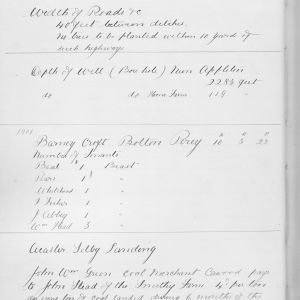 Width of Roads &c
40 feet between ditches.
No trees to be planted within 10 yards of
such highways
Depth of Well (Bore hole) Nun Appleton
228½ feet
do do Home Farm 119 "
1911
Barney Croft Bolton Percy 10 " 3 " 22 "
Number of Tenants
Beal 1 Beast
Parr 1 "
Whitehead 1 "
F Fisher 1 "
J Abbey 1 "
Wm Head 3 "
Acaster Selby Landing
John Wm Green coal Merchant Cawood pays
to John Head of the Smithy Farm 4d per ton
for every ton of coal landed during 6 months of the